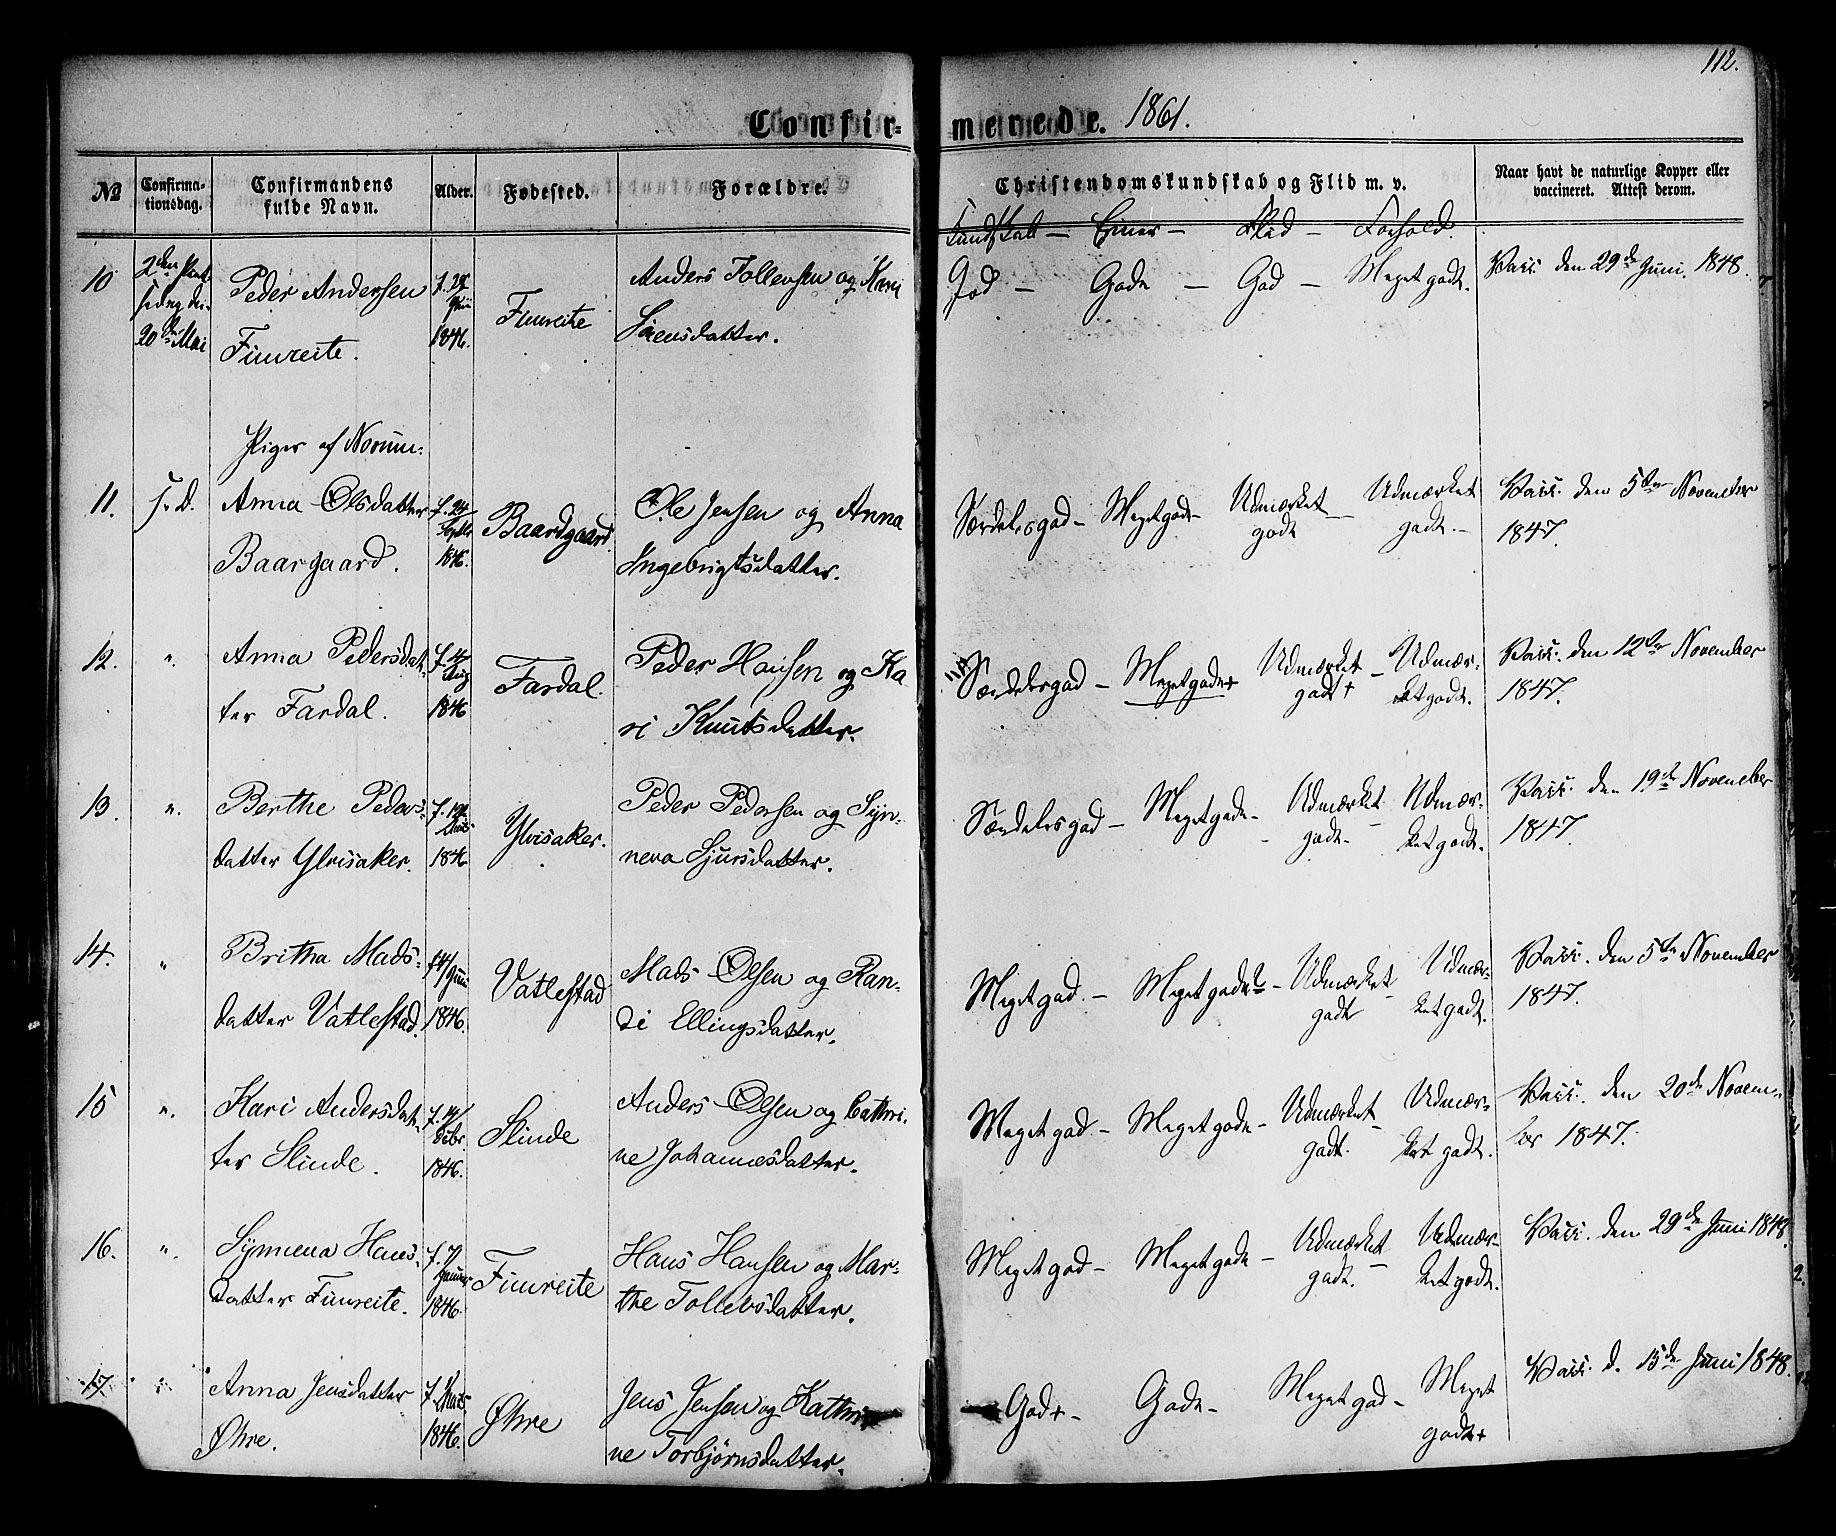 112.
Confir= merede. 1861.
№ Confirma-tionsdag. Confirmandens fulde Navn. Alder. Fødested. Forældre. Christendomskundskab og Flid m. v. Naar havt de naturlige Kopper eller vaccineret. Attest derom.
Kundskab — Evner — Flid — Forhold.
10 2den Pintsedag den 20de Mai Peder Andersen Fimreite. f. 1846. Fimreite Anders Tollevsen og Kari Sørensdatter. God — Gode — God — Meget godt. Vacc. den 29de Juni 1848.
Piger af Norum=
11. s. D. Anna Olsdatter Baargaard. f. 24/Septbr 1846. Baardgaard. Ole Jensen og Anna Ingebrigtsdatter. Særdelesgod — Megetgode — Udmærket godt — Udmærket godt. — Vacc. den 5te November 1847.
12. ". Anna Pedersdatter Fardal. f. Aug 1846 Fardal. Peder Hansen og Kari Knutsdatter. Særdelesgod — Megetgode+ Udmærket godt+ — Udmærket godt. Vacc. den 12te November 1847.
13. ". Berthe Pedersdatter Ylvisaker. f. 1846 Ylvisaker. Peder Pedersen og Synneva Sjursdatter. Særdelesgod — Megetgode — Udmærket godt. — Udmærket godt. Vacc. den 19de November 1847.
14. " Britha Madsdatter Vatlestad. 1846. Vatlestad Mads Olsen og Randi Ellingsdatter. Megetgod. — Megetgode — Udmærket godt — Udmærket godt. Vacc. den 5te November 1847.
15 ". Kari Andersdatter Slinde. f. 14/ 1846. Slinde Anders Olsen og Cathrine Johannesdatter. Megetgod — Megetgode — Udmærket godt. — Udmærket godt. Vacc. den 20de November 1847.
16. ". Synneva Hansdatter Fimreite. f. 7/ Januar 1846. Fimreite Hans Hansen og Marthe Tollevsdatter. Megetgod — Megetgode — Udmærket godt. — Udmærket godt. Vacc. den 29de Juni 1848.
17 " Anna Jensdatter Øhre. f. 1846. Øhre Jens Jensen og Kathrine Torbjørnsdatter. God+ — Gode — Meget god — Meget godt+ Vacc. d. 15de Juni 1848.